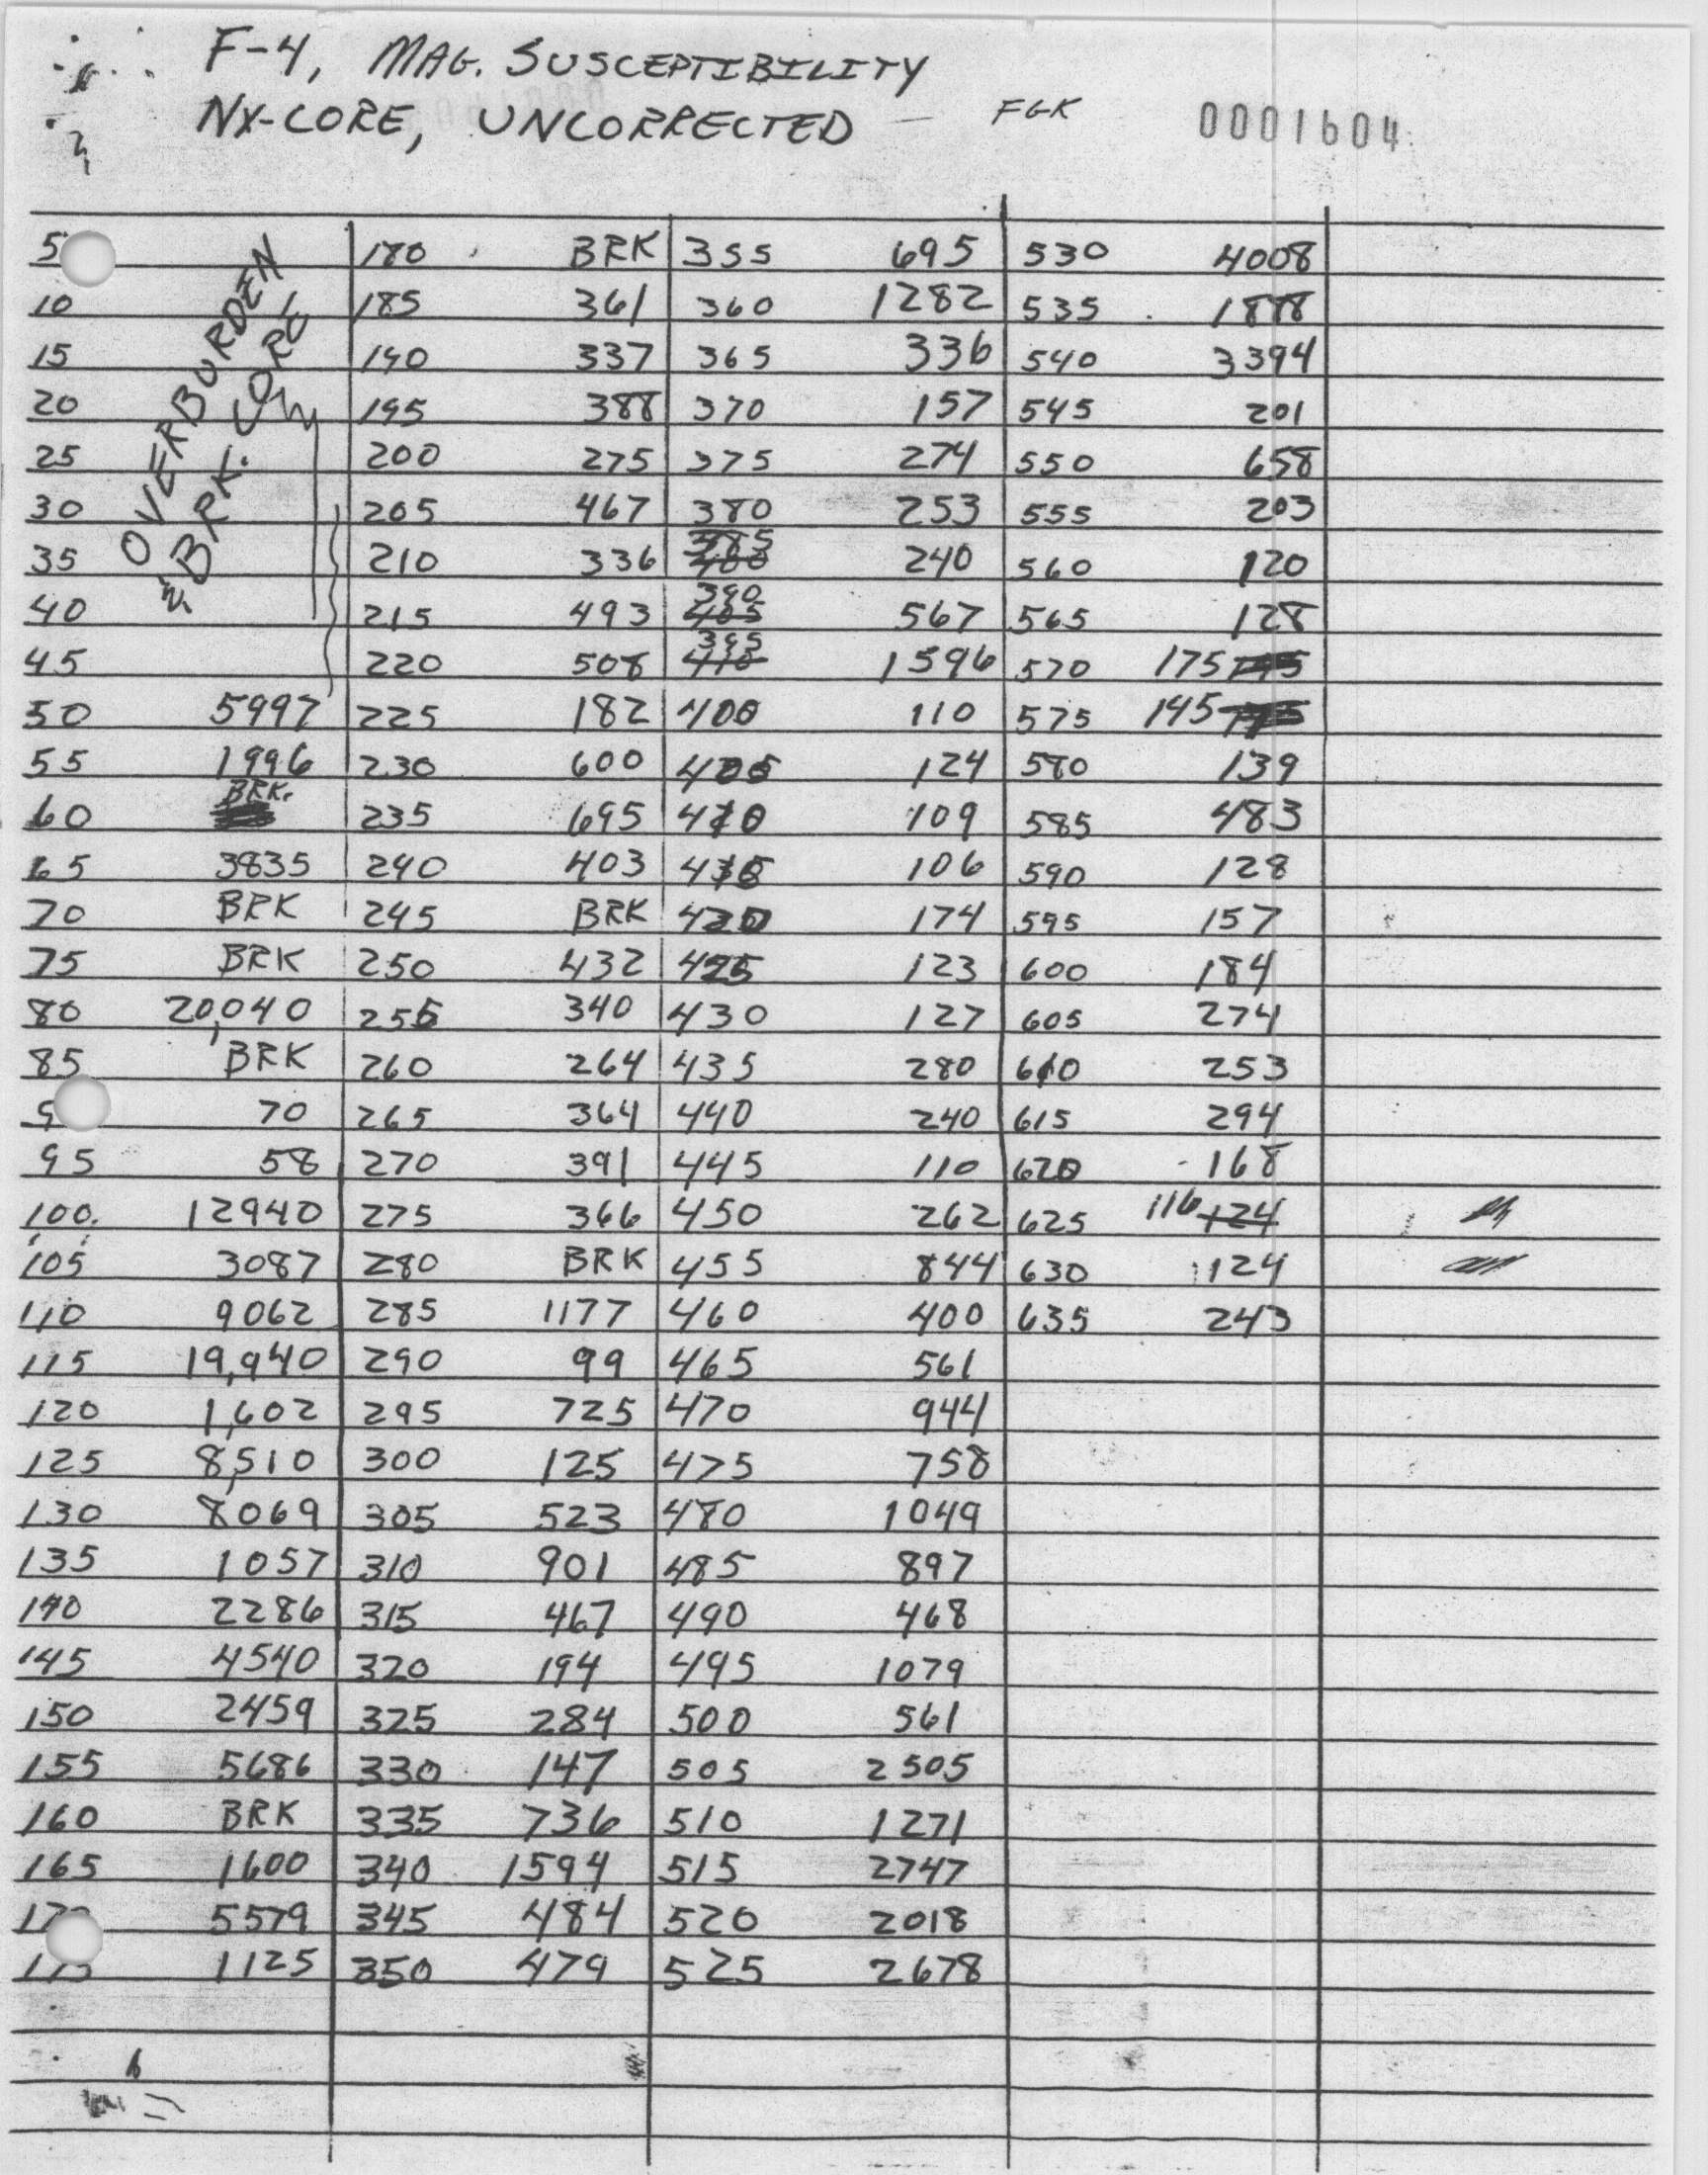 F-4, MAG. SUSCEPTIBILITY
NX-CORE, UNCORRECTED FGK 0001604
OVERBURDEN
& BRK. CORE
5 180 BRK 355 695 530 4008
10 185 361 360 1282 535 1888
15 190 337 365 336 540 3394
20 195 388 370 157 545 201
25 200 275 375 274 550 658
30 205 467 380 253 555 203
35 210 336 385 240 560 120
40 215 493 390 567 565 128
45 220 508 395 1596 570 175
50 5997 225 182 400 110 575 145
55 1996 230 600 405 124 580 139
60 BRK. 235 695 410 109 585 483
65 3835 240 403 415 106 590 128
70 BRK 245 BRK 420 174 595 157
75 BRK 250 432 425 123 600 184
80 20,040 255 340 430 127 605 274
85 BRK 260 264 435 280 610 253
9 70 265 364 440 240 615 294
95 58 270 391 445 110 620 168
100 12940 275 366 450 262 625 116 124
105 3087 280 BRK 455 844 630 124
110 9062 285 1177 460 400 635 243
115 19,940 290 99 465 561
120 1,602 295 725 470 944
125 8,510 300 125 475 758
130 8069 305 523 480 1049
135 1057 310 901 485 897
140 2286 315 467 490 468
145 4540 320 194 495 1079
150 2459 325 284 500 561
155 5686 330 147 505 2505
160 BRK 335 736 510 1271
165 1600 340 1594 515 2747
170 5579 345 484 520 2018
175 1125 350 479 525 2678